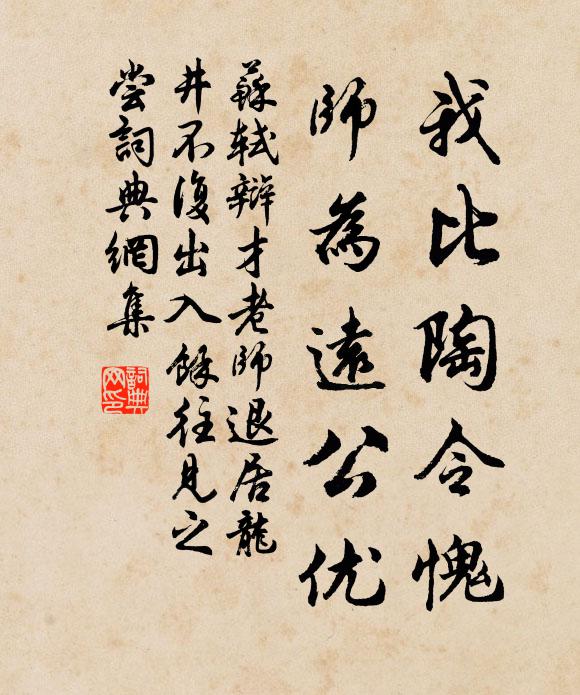 我比陶令愧
師為遠公优
蘇軾辯才老師退居龍
井不復出入餘往見之
嘗詞典網集
詞典
网印